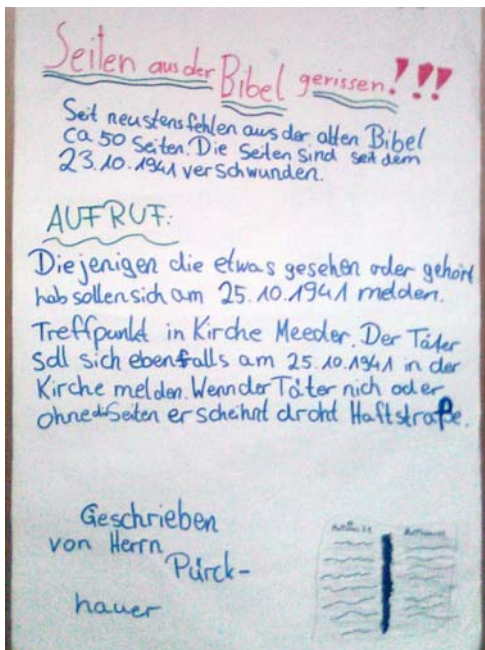 Seiten aus der Bibel gerissen!!!
Seit neustens fehlen aus der alten Bibel
ca 50 Seiten. Die Seiten sind seit dem
23.10.1941 verschwunden.
AUFRUF:
Diejenigen die etwas gesehen oder gehört
hab sollen sich am 25.10.1941 melden.
Treffpunkt in Kirche Meeder. Der Täter
soll sich ebenfalls am 25.10.1941 in der
Kirche melden. Wenn der Täter nich oder
ohne Seiten erscheihnt droht Haftstrafe.
Geschrieben
von Herrn
Pürck-
hauer